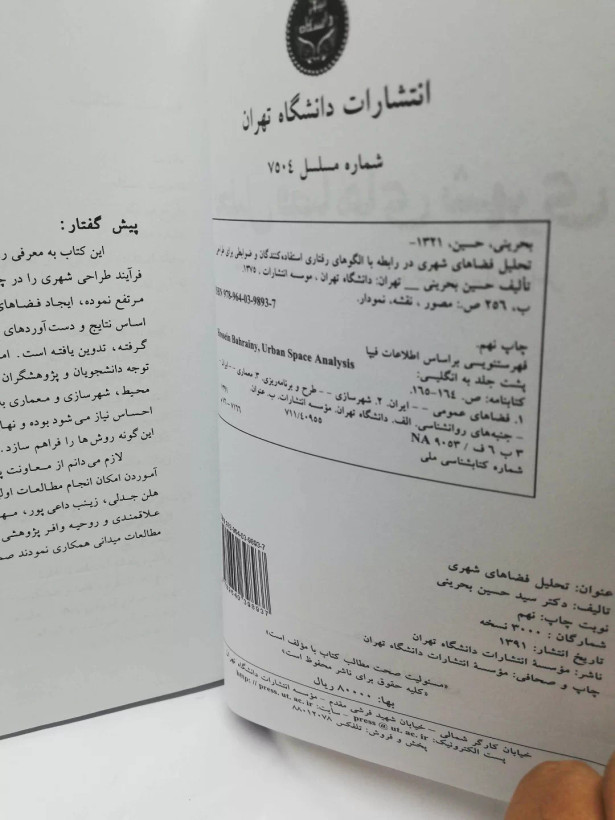 انتشارات دانشگاه تهران
شماره مسلسل ۷۵۰۴
بحرینی، حسین، ۱۳۲۱-
تحلیل فضاهای شهری در رابطه با الگوهای رفتاری استفاده‌کنندگان و ضوابطی برای طراحی
تألیف حسین بحرینی __ تهران: دانشگاه تهران، موسسه انتشارات، ۱۳۷۵.
ب، ۲۵۶ ص.: مصور، نقشه، نمودار.
ISBN 978-964-03-9893-7
چاپ نهم.
فهرستنویسی براساس اطلاعات فیپا
پشت جلد به انگلیسی: Hossein Bahrainy, Urban Space Analysis
کتابنامه: ص. ۱۶۴-۱۶۵.
۱. فضاهای عمومی -- ایران. ۲. شهرسازی -- طرح و برنامه‌ریزی. ۳. معماری -- ایران
- جنبه‌های روانشناسی. الف. دانشگاه تهران. مؤسسه انتشارات. ب. عنوان.
۳ ب ۶ ف / NA ۹۰۵۳ ۷۱۱/۴۰۹۵۵
شماره کتابشناسی ملی
عنوان: تحلیل فضاهای شهری
تالیف: دکتر سید حسین بحرینی
نوبت چاپ: نهم
شمارگان: ۳۰۰۰ نسخه
تاریخ انتشار: ۱۳۹۱
ناشر: مؤسسهٔ انتشارات دانشگاه تهران
چاپ و صحافی: مؤسسهٔ انتشارات دانشگاه تهران
«مسئولیت صحت مطالب کتاب با مؤلف است»
«کلیه حقوق برای ناشر محفوظ است»
بها: ۸۰۰۰۰ ریال
خیابان کارگر شمالی - خیابان شهید فرشی مقدم - مؤسسه انتشارات دانشگاه تهران
پست الکترونیک: press @ ut. ac. ir - سایت: http: // press. ut. ac. ir
پخش و فروش: تلفکس ۸۸۰۱۲۰۷۸
پیش گفتار:
این کتاب به معرفی
فرآیند طراحی شهری را در
مرتفع نموده، ایجاد فضاهای
اساس نتایج و دست‌آوردهای
گرفته، تدوین یافته است.
توجه دانشجویان و پژوهشگران
محیط، شهرسازی و معماری
احساس نیاز می‌شود بوده و
این گونه روش‌ها را فراهم سازد.
لازم می‌دانم از معاونت
آوردن امکان انجام مطالعات
هلن جدلی، زینب داعی پور،
علاقمندی و روحیه وافر پژوهشی
مطالعات میدانی همکاری نمودند